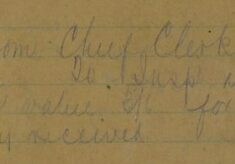 ome Chief Clerk
To Insp
value 5/6 for
y received